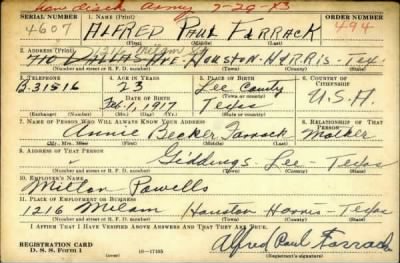 hon disch Army 7-29-43
SERIAL NUMBER 1. NAME (Print) ORDER NUMBER
4607 ALFRED PAUL FARRACK 494
(First) (Middle) (Last)
2. ADDRESS (Print) 1216 Milam St
710 DALLAS AVE. HOUSTON-HARRIS-TEX.
(Number and street or R. F. D. number) (Town) (County) (State)
3. TELEPHONE 4. AGE IN YEARS 5. PLACE OF BIRTH 6. COUNTRY OF CITIZENSHIP
B.31516 23 Lee County
DATE OF BIRTH (Town or county) U.S.A.
Feb. 1, 1917 Texas
(Exchange) (Number) (Mo.) (Day) (Yr.) (State or country)
7. NAME OF PERSON WHO WILL ALWAYS KNOW YOUR ADDRESS 8. RELATIONSHIP OF THAT PERSON
Annie Becker Farrack Mother
(Mr., Mrs., Miss) (First) (Middle) (Last)
9. ADDRESS OF THAT PERSON
Giddings - Lee - Texas
(Number and street or R. F. D. number) (Town) (County) (State)
10. EMPLOYER'S NAME
Milton Powells
11. PLACE OF EMPLOYMENT OR BUSINESS
1216 Milam Houston Harris - Texas
(Number and street or R. F. D. number) (Town) (County) (State)
I AFFIRM THAT I HAVE VERIFIED ABOVE ANSWERS AND THAT THEY ARE TRUE.
REGISTRATION CARD
D. S. S. Form 1 16-17105 Alfred Paul Farrack
(Registrant's signature)